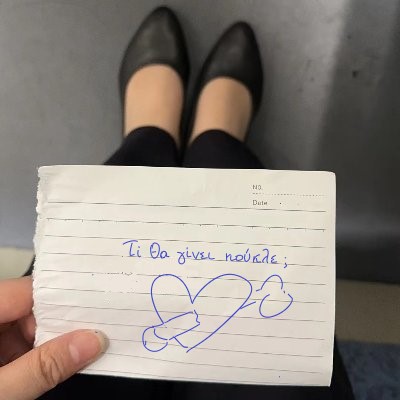 No.
Date
Τί θα γίνει κούκλε;